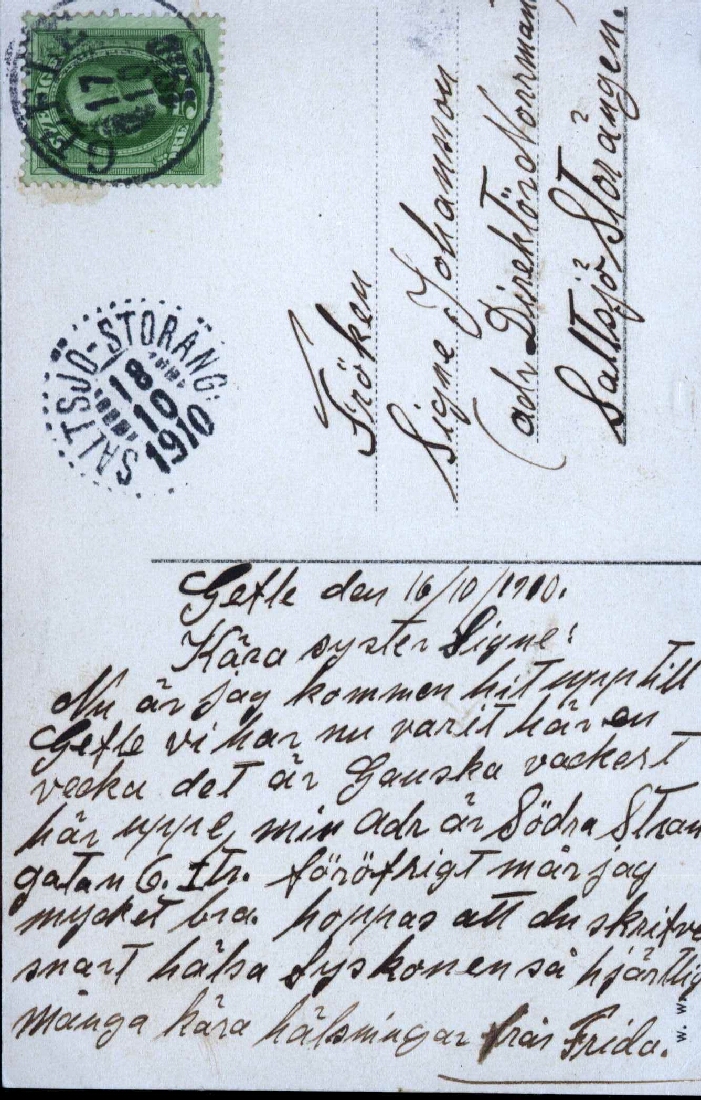 GEFLE
17
10
SVERIGE
SALTSJÖ-STORÄNG.
18
10
1910
Fröken
Signe Johansson
(adr Direktör Norrman
Saltsjö-Storängen.
Gefle den 16/10/1910.
Kära syster Signe!
Nu är jag kommen hit upp till
Gefle vi har nu varit här en
vecka det är Ganska vackert
här uppe, min adr är Södra Stran
gatan 6. I tr. föröfrigt mår jag
mycket bra. hoppas att du skrifve
snart hälsa Syskonen så hjärtlig
många kära hälsningar från Frida.
W. W.